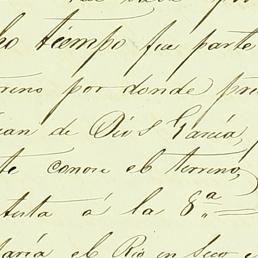 ho tiempo fia parte
rreno por donde pre
uan de Dios Garcia,
te conose el terreno,
testa á la 8.ª =
taría el Rio en Seco e